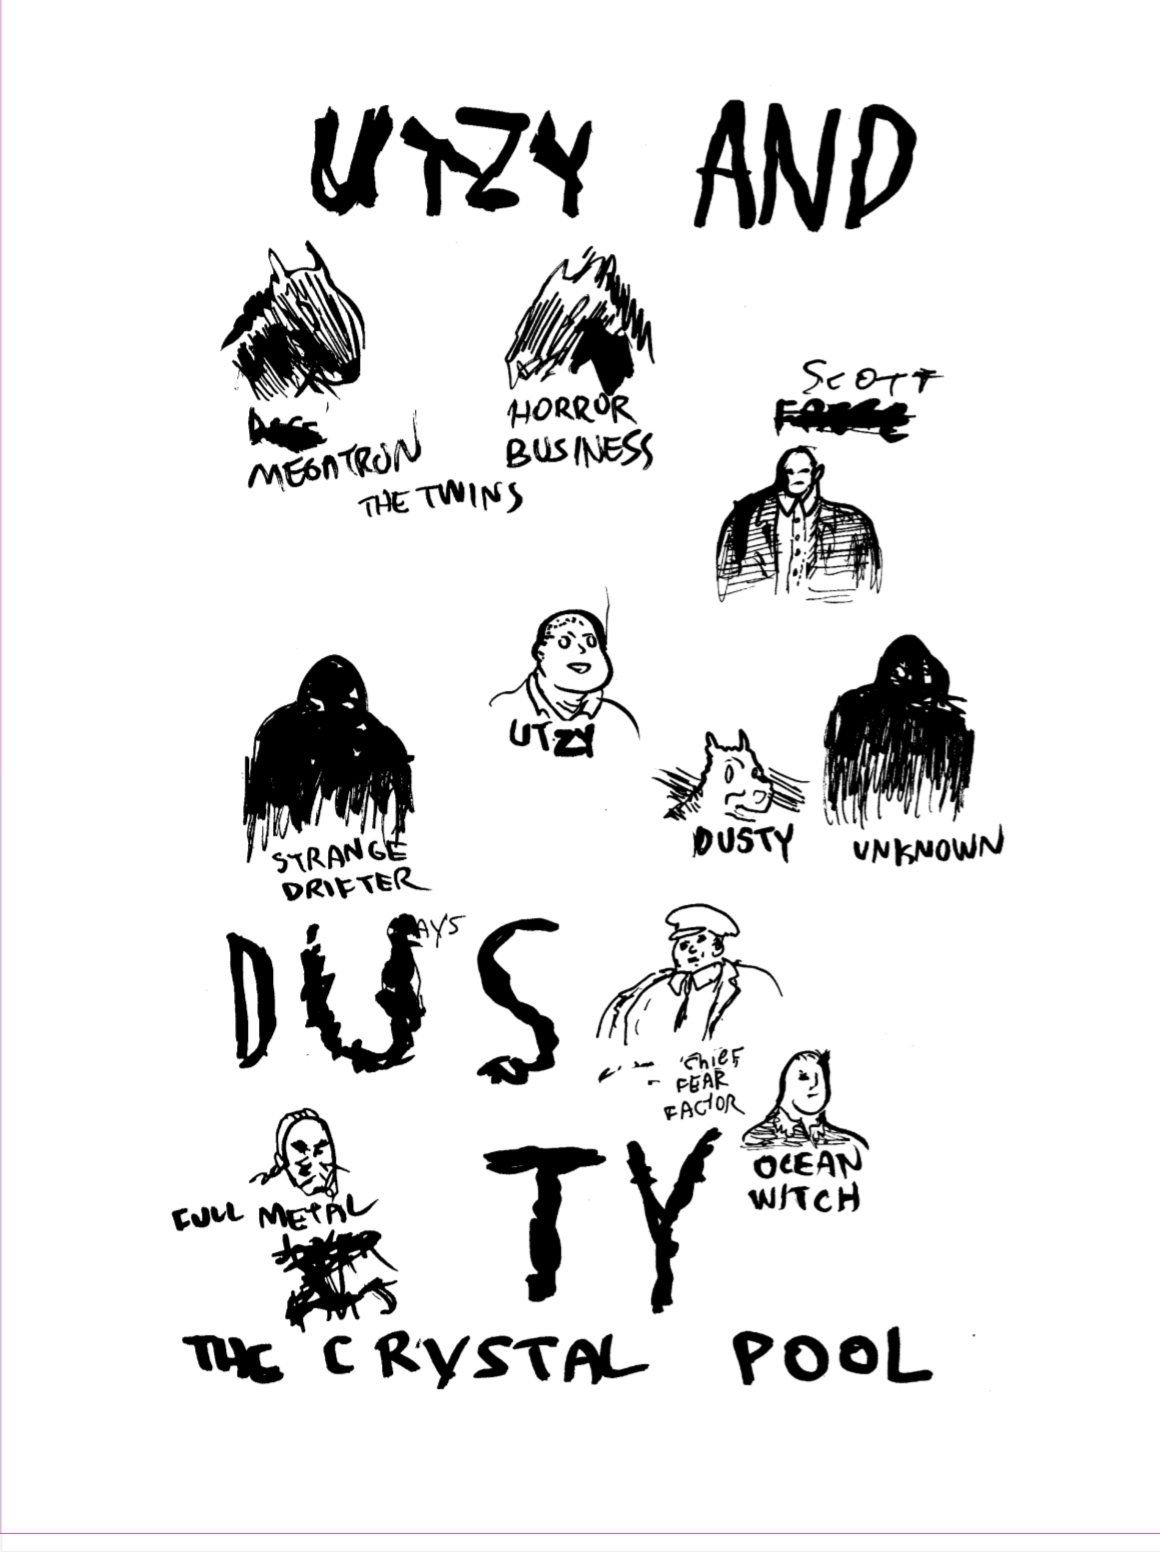 UTZY AND
MEGATRON
HORROR
BUSINESS
THE TWINS
SCOTT
UTZY
DUSTY
UNKNOWN
STRANGE
DRIFTER
DUS
AYS
CHIEF
FEAR
FACTOR
OCEAN
WITCH
FULL METAL
TY
THE CRYSTAL POOL